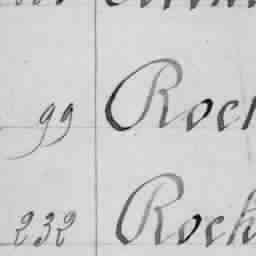 99 Roc
232 Rock